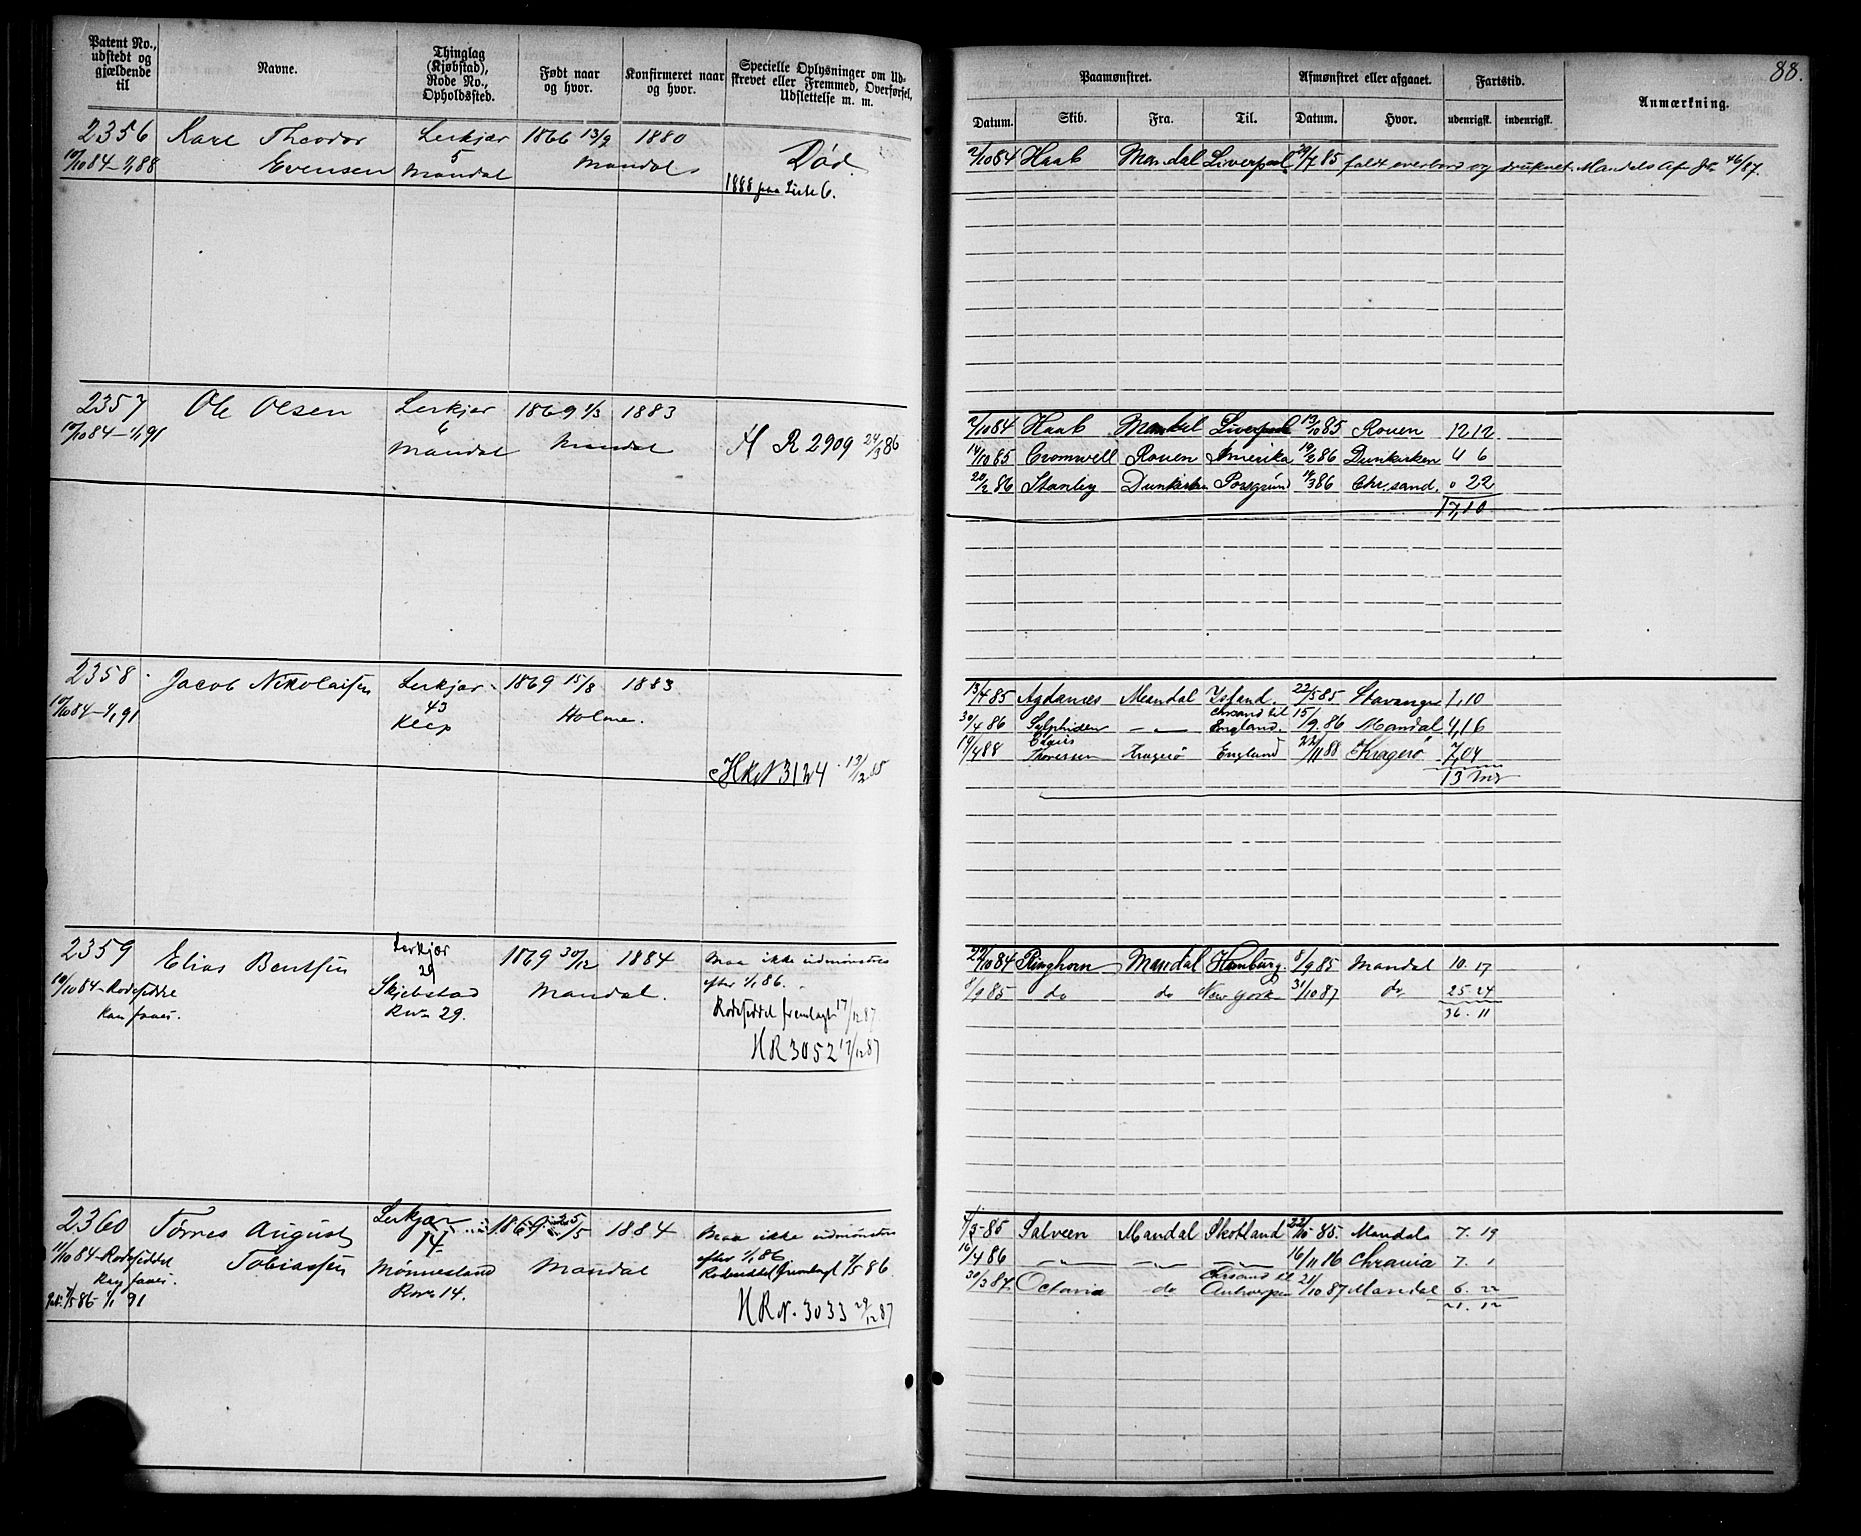 Patent No., udstedt og gjældende til
Navne.
Thinglag (Kjøbstad), Rode No., Opholdssted.
Født naar og hvor.
Konfirmeret naar og hvor.
Specielle Oplysninger om Udskrevet eller Fremmed, Overførsel, Udslettelse m. m.
2356 Karl Theodor Lerkjær 1866 13/9 1880 Død.
10/10 84 – 1/1 88 Evensen 5 Mandal Mandal
1888 paa Liste 6.
2357 Ole Olsen Lerkjær 1869 1/3 1883
10/10 84 – 1/1 91 6 Mandal Mandal H R 2909 24/3 86
2358 Jacob Nikolaisen Lerkjær 1869 15/8 1883
10/10 84 – 1/1 91 43 Kleep Holme.
3124 13/12 
2359 Elias Bentsen Lerkjær 1869 30/12 1884 Maa ikke udmønstres
10/10 84 – Rodeseddel 29 Skjebstad Mandal. efter 1/1 86.
Rode 29. Rodeseddel fremlagt 17/12 87
HR 3052 17/12 87
2360 Tørres August Lerkjær 1869 25/5 1884 Maa ikke udmønstres
11/10 84 – Rodeseddel Tobiassen 14 Mønnesland Mandal efter 1/1 86
Rode 14. Rodeseddel fremlagt 7/5 86.
7/5 86 – 1/1 91
HR N. 3033 29/12 87
88.
Paamønstret.
Afmønstret eller afgaaet.
Fartstid.
Anmærkning.
Datum. Skib. Fra. Til. Datum. Hvor. udenrigsk. indenrigsk.
2/10 84 Haab Mandal Liverpool 29/7 85 faldt overbord og druknet. Mandals 46/87.
2/10 84 Haab Mandal Liverpool 13/10 85 Rouen 12 12
14/10 85 Cromwell Rouen Amerika 19/2 86 Dunkirken 4 6
20/2 86 Stanley Dunkirken Porsgrund 14/3 86 Chr.sand. 0 22
17,10
13/4 85 Agdanæs Mandal Island. 22/5 85 Stavanger 1,10
30/4 86 Sylphiden –„– Chrsand til England. 15/9 86 Mandal 4,16
19/4 88 Thoressen Kragerø England 22/11 88 Kragerø 7,04
13
22/10 84 Ringhorn Mandal Hamburg. 8/9 85 Mandal 10. 17
8/9 85 do do New York 31/10 87 do 25. 24
36. 11
4/3 85 Salveen Mandal Skotland 22/10 85. Mandal 7. 19
16/4 86 –„– –„– –„– 16/11 86 Chrania 7. 1
30/3 87. Octavia do Chrsand til Antwerpen 21/10 87 Mandal 6. 22
21. 12